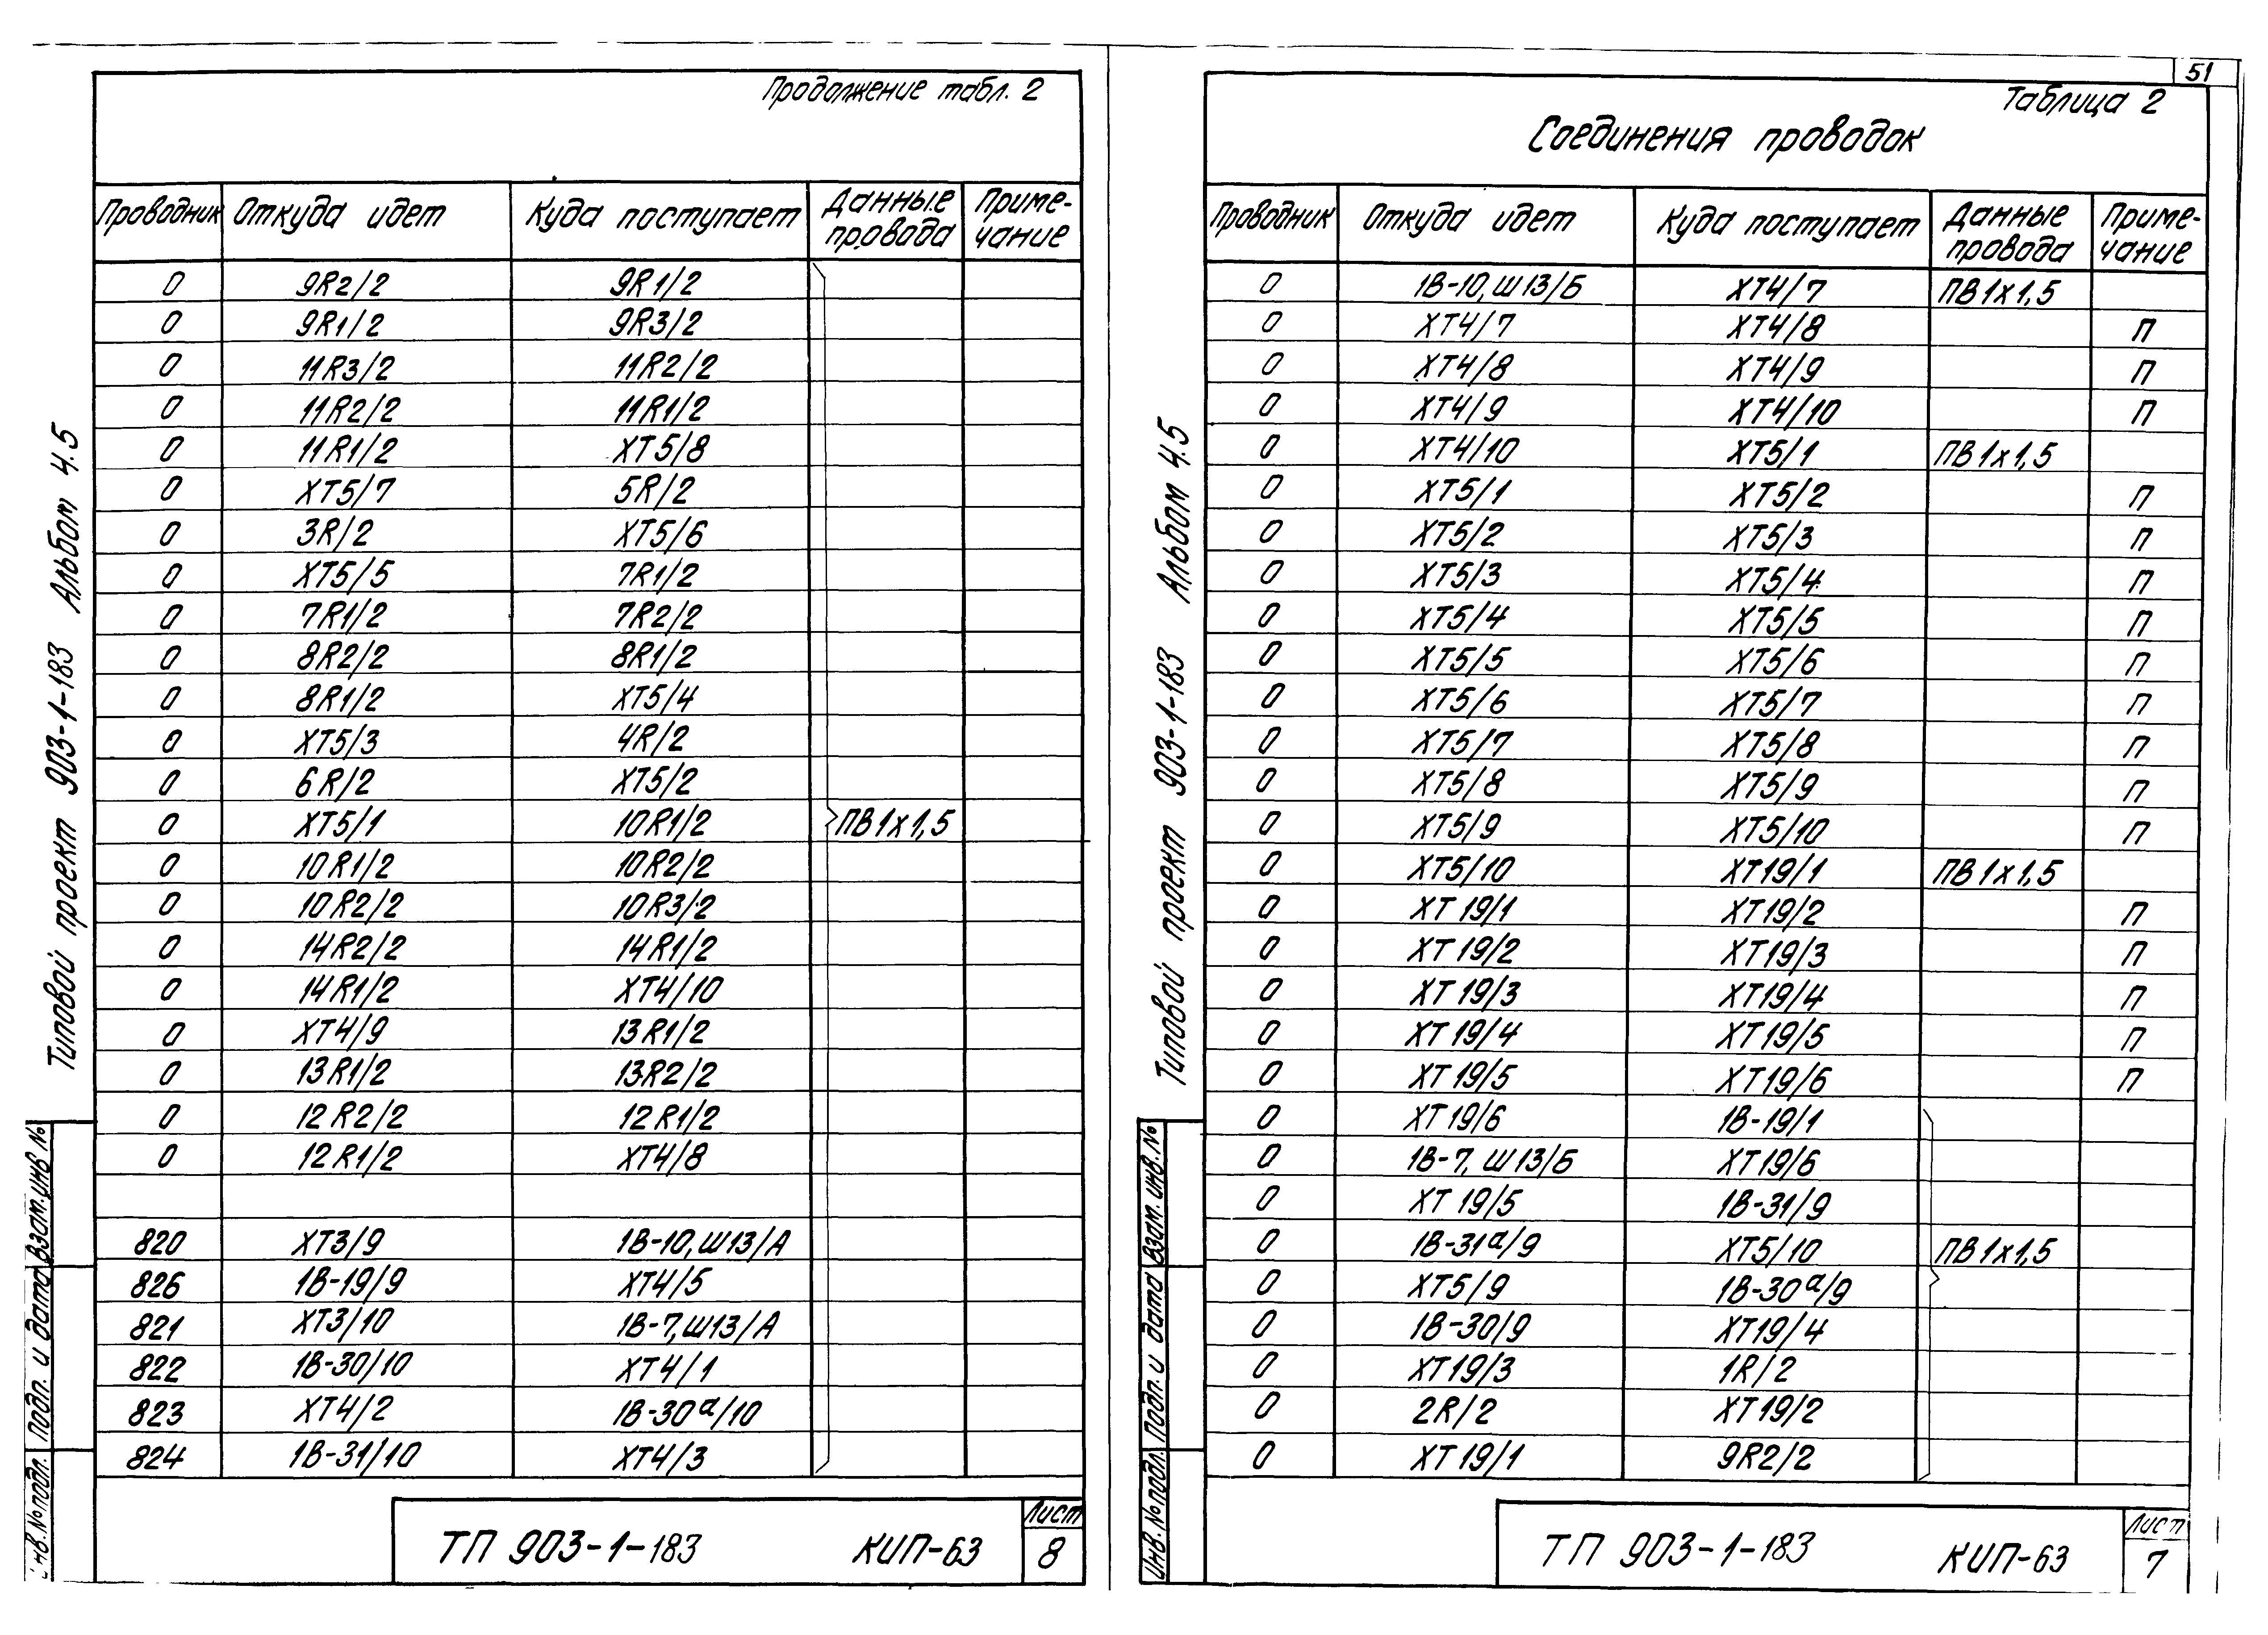 Продолжение табл. 2
Проводник Откуда идет Куда поступает Данные провода Приме-чание
0 9R2/2 9R1/2
0 9R1/2 9R3/2
0 11R3/2 11R2/2
0 11R2/2 11R1/2
0 11R1/2 XT5/8
0 XT5/7 5R/2
0 3R/2 XT5/6
0 XT5/5 7R1/2
0 7R1/2 7R2/2
0 8R2/2 8R1/2
0 8R1/2 XT5/4
0 XT5/3 4R/2
0 6R/2 XT5/2
0 XT5/1 10R1/2 ПВ1х1,5
0 10R1/2 10R2/2
0 10R2/2 10R3/2
0 14R2/2 14R1/2
0 14R1/2 XT4/10
0 XT4/9 13R1/2
0 13R1/2 13R2/2
0 12R2/2 12R1/2
0 12R1/2 XT4/8
820 XT3/9 1В-10,Ш13/А
826 1В-19/9 XT4/5
821 XT3/10 1В-7,Ш13/А
822 1В-30/10 XT4/1
823 XT4/2 1В-30а/10
824 1В-31/10 XT4/3
Типовой проект 903-1-183 Альбом 4.5
Взам.инв №
Подп. и дата
нв.№подл.
ТП 903-1-183 КИП-63
Лист
8
51
Таблица 2
Соединения проводок
Проводник Откуда идет Куда поступает Данные провода Приме-чание
0 1В-10,Ш13/Б XT4/7 ПВ1х1,5
0 XT4/7 XT4/8 П
0 XT4/8 XT4/9 П
0 XT4/9 XT4/10 П
0 XT4/10 XT5/1 ПВ1х1,5
0 XT5/1 XT5/2 П
0 XT5/2 XT5/3 П
0 XT5/3 XT5/4 П
0 XT5/4 XT5/5 П
0 XT5/5 XT5/6 П
0 XT5/6 XT5/7 П
0 XT5/7 XT5/8 П
0 XT5/8 XT5/9 П
0 XT5/9 XT5/10 П
0 XT5/10 XT19/1 ПВ1х1,5
0 XT19/1 XT19/2 П
0 XT19/2 XT19/3 П
0 XT19/3 XT19/4 П
0 XT19/4 XT19/5 П
0 XT19/5 XT19/6 П
0 XT19/6 1В-19/1
0 1В-7, Ш13/Б XT19/6
0 XT19/5 1В-31/9
0 1В-31а/9 XT5/10 ПВ1х1,5
0 XT5/9 1В-30а/9
0 1В-30/9 XT19/4
0 XT19/3 1R/2
0 2R/2 XT19/2
0 XT19/1 9R2/2
Типовой проект 903-1-183 Альбом 4.5
Взам. инв.№
Подп. и дата
Инв.№подл.
ТП 903-1-183 КИП-63
Лист
7